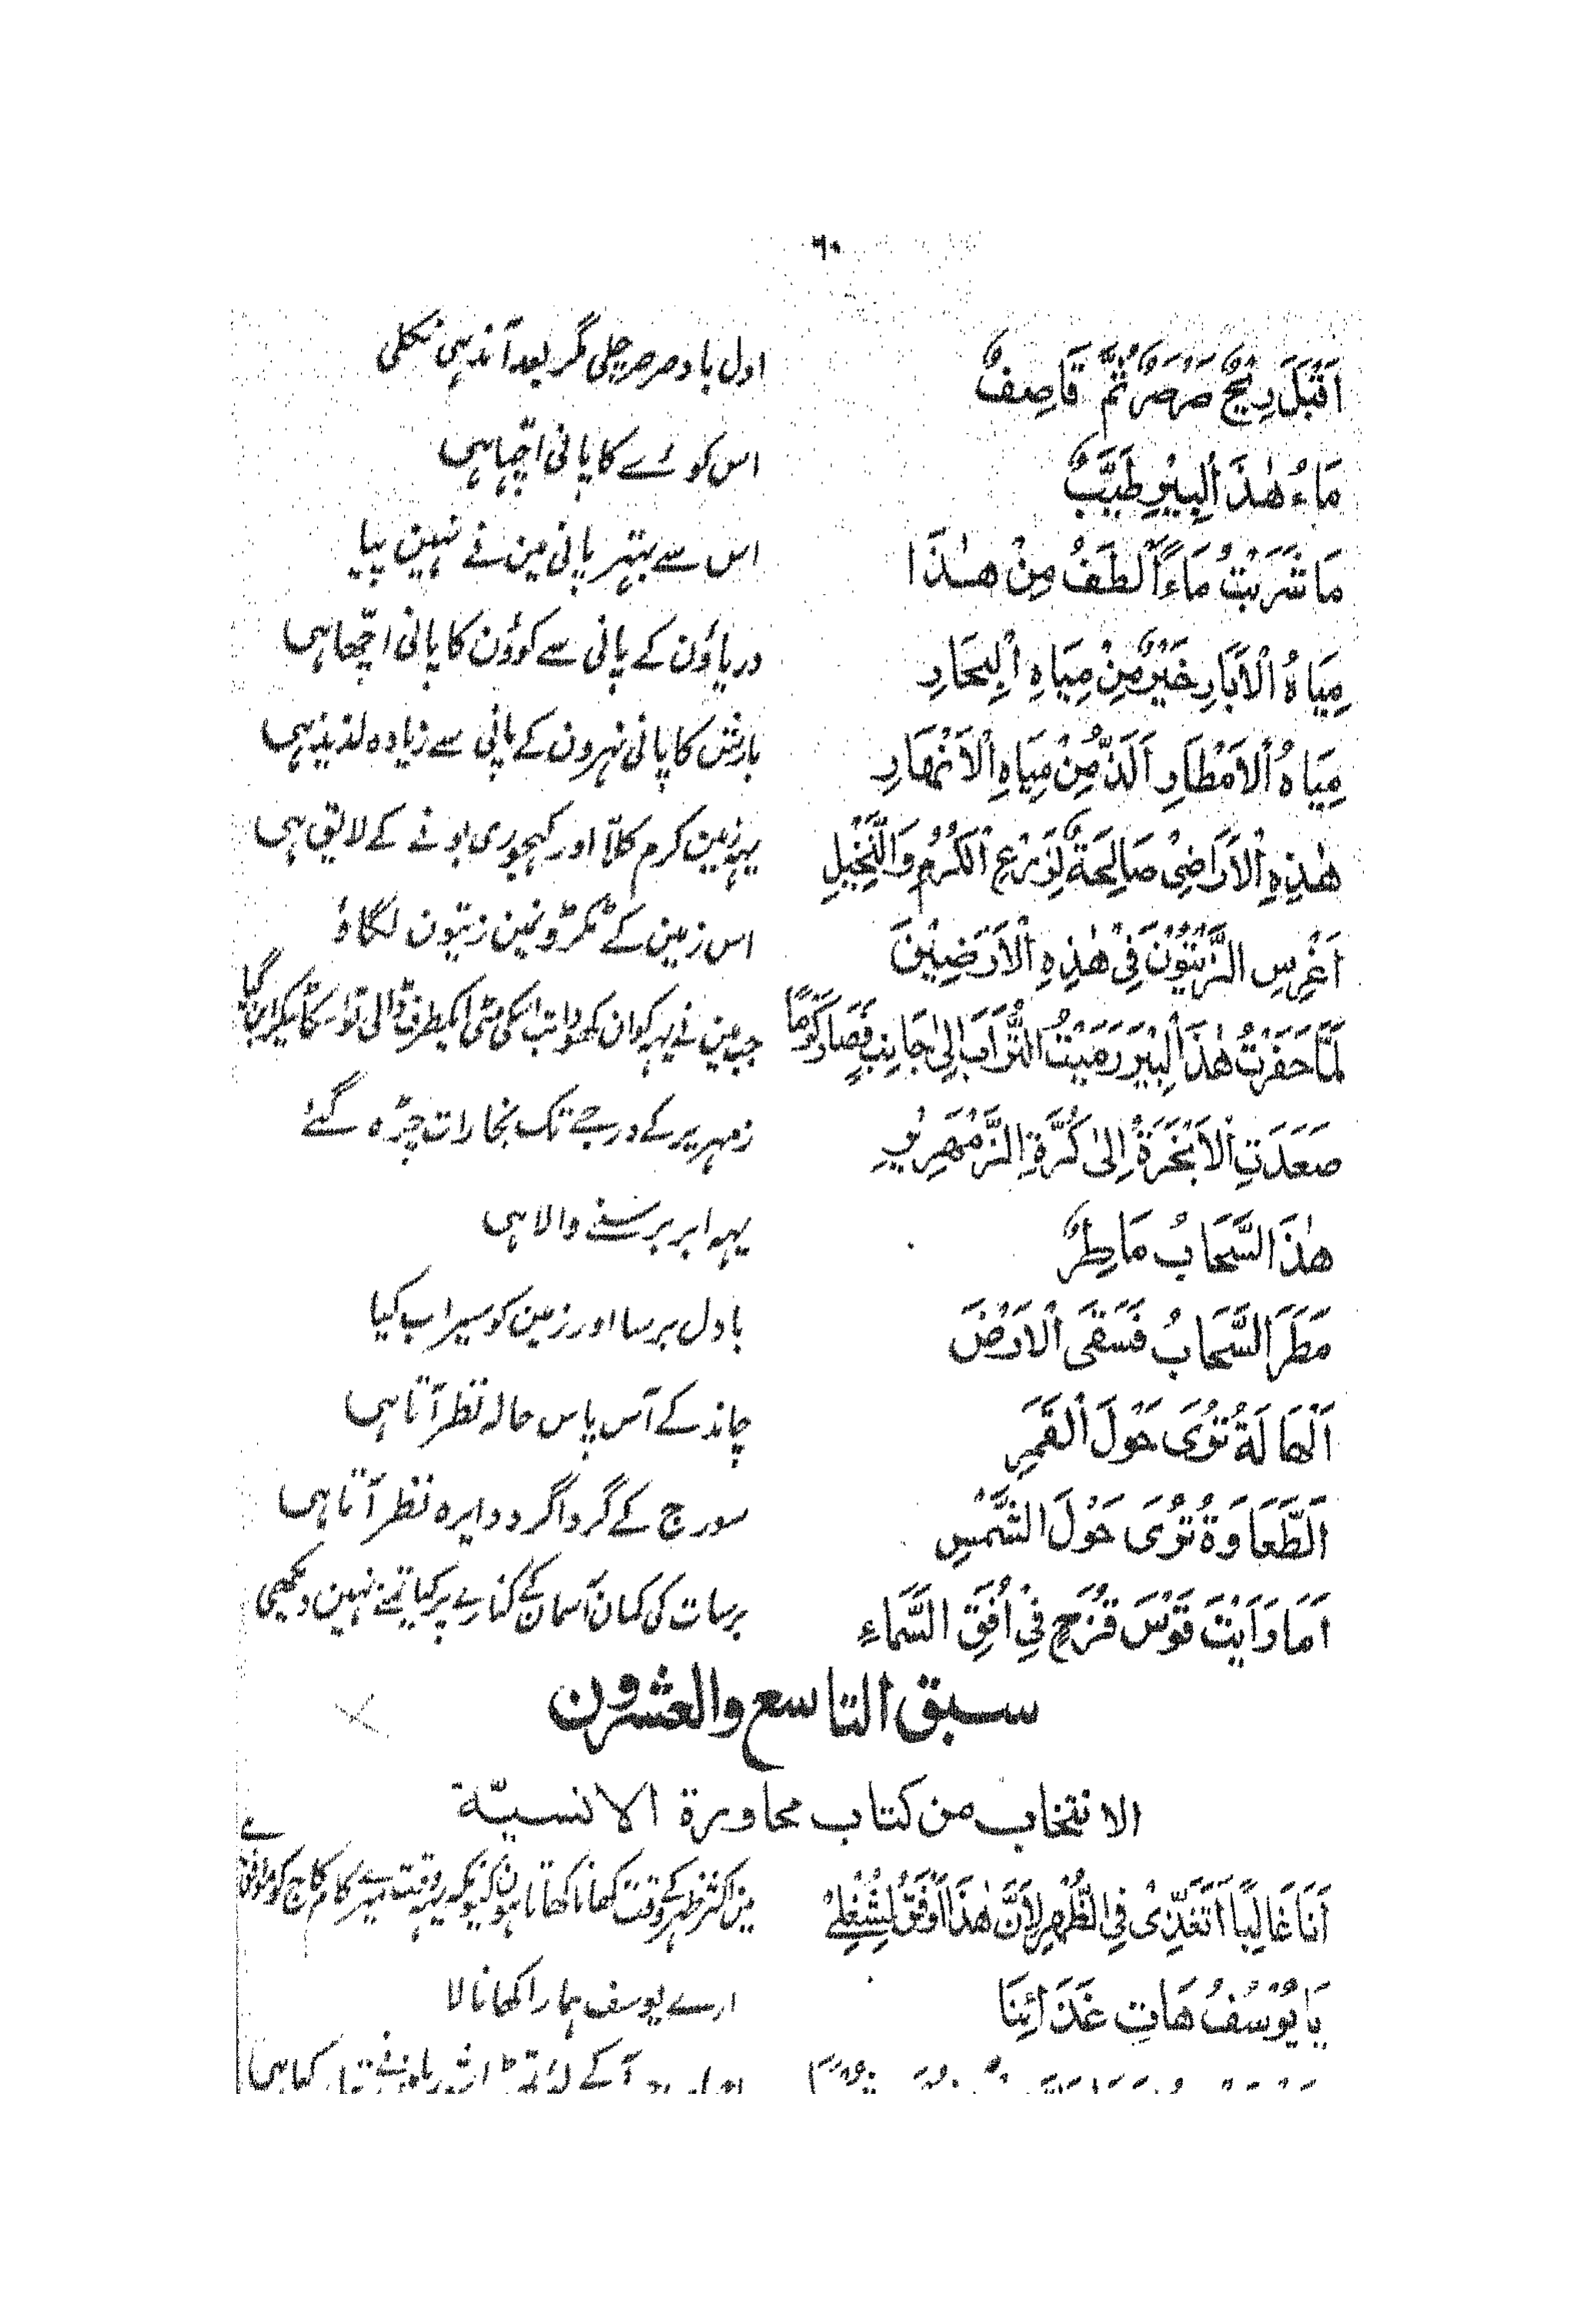 ۶۰
اَقْبَلَ رِیْحٌ صَرْصَرٌ ثُمَّ قَاصِفٌ اول باد صرصر چلی مگر بعد آندہی نکلی
مَاءُ هٰذَ الْبِیْرِ طَیِّبٌ اس کوئے کا پانی اچہا ہی
مَا شَرَبْتُ مَاءً اَلْطَفُ مِنْ هٰذَا اس سے بہتر پانی مین نے نہین پیا
مِیَاهُ الْاٰبَارِ خَیْرٌ مِّنْ مِیَاهِ الْبِحَارِ دریاؤن کے پانی سے کوؤن کا پانی اچھا ہی
مِیَاهُ الْاَمْطَارِ اَلَذُّ مِنْ مِیَاهِ الْاَنْهَارِ بارش کا پانی نہرون کے پانی سے زیادہ لذیذ ہی
هٰذِهِ الْاَرَاضِیْ صَالِحَةٌ لِزَرْعِ الْکَرْمِ وَالنَّخِیْلِ یہہ زمین کرم کلا اور کہجوری بونے کے لایق ہی
اَغْرِسِ الزَّیْتُوْنَ فِیْ هٰذِهِ الْاَرَضِیْنَ اس زمین کے ٹکڑونمین زیتون لگاؤ
لَمَّا حَفَرْتُ هٰذَ الْبِیْرَ رَمَیْتُ التُّرَابَ اِلٰی جَانِبٍ فَصَارَ کَوْمًا جب مین نے یہہ کوان کھودا تب اسکی مٹی ایکطرف ڈالی تو اسکا ٹیکرا بن گیا
صَعَدَتِ الْاَبْخَرَةُ اِلٰی کُرَّةِ الزَّمْهَرِیْرِ زمہریر کے درجے تک بخارات چڑہ گئے
هٰذَ السَّحَابُ مَاطِرٌ یہہ ابر برسنے والا ہی
مَطَرَ السَّحَابُ فَسَقَی الْاَرْضَ بادل برسا اور زمین کو سیراب کیا
اَلْهَالَةُ تُرٰی حَوْلَ الْقَمَرِ چاند کے آس پاس حالہ نظر آتا ہی
اَلطَّفَاوَةُ تُرٰی حَوْلَ الشَّمْسِ سورج کے گرد اگرد دایرہ نظر آتا ہی
اَمَا رَاَیْتَ قَوْسَ قُزَحٍ فِیْ اُفُقِ السَّمَاءِ برسات کی کمان آسمان کے کنارے پر کیا تمنے نہین دیکھی
سبق التاسع والعشرون
الانتخاب من کتاب محاورة الانسیّة
اَنَا غَالِبًا اَتَغَدّٰی فِی الظُّهْرِ لِاَنَّ هٰذَا اَوْفَقُ لِشُغْلِیْ مین اکثر ظہر کے وقت کھانا کھاتا ہون کیونکہ یہہ وقت میرے کام کاج کو موافق ہے
یَا یُوْسُفُ هَاتِ غَذَائَنَا ارے یوسف ہمارا کھانا لا